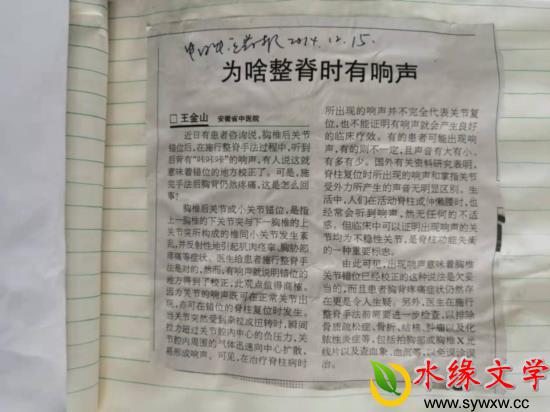 中国中医药报 2014.12.15.
为啥整脊时有响声
□王金山 安徽省中医院
近日有患者咨询说，胸椎后关节
错位后，在施行整脊手法过程中，听到
后背有“咔咔咔”的响声，有人说这就
意味着错位的地方校正了。可是，施
完手法后胸背仍然疼痛，这是怎么回
事？
胸椎后关节或小关节错位，是指
上一胸椎的下关节突与下一胸椎的上
关节突所构成的椎间小关节发生紊
乱，并反射性地引起肌肉痉挛、胸胁部
疼痛等症状。医生给患者施行整脊手
法是对的，然而，有响声就说明错位的
地方得到了校正，此观点值得商榷。
因为关节的响声既可在正常关节出
现，亦可在错位的脊柱复位时发生。
当关节突然受到牵拉或扭转时，瞬间
拉力超过关节腔内中心的负压力，关
节腔内周围的气体迅速向中心扩散，
易形成响声。可见，在治疗脊柱病时
所出现的响声并不完全代表关节复
位，也不能证明有响声就会产生良好
的临床疗效。有的患者可能出现响
声，有的则不一定，且声音有大有小、
有多有少。国外有关资料研究表明，
脊柱复位时所出现的响声和掌指关节
受外力所产生的声音无明显区别。生
活中，人们在活动脊柱或伸懒腰时，也
经常会听到响声，然无任何的不适
感。但临床中可以证明出现响声的关
节均为不稳定关节，是脊柱功能失衡
的一种重要标志。
由此可见，出现响声意味着胸椎
关节错位已经校正的这种说法是欠妥
当的，而且患者胸背疼痛症状仍然存
在更是令人生疑。另外，医生在施行
整脊手法前需要进一步检查，以排除
骨质疏松症、骨折、结核、肿瘤以及化
脓性炎症等，包括拍胸部或胸椎X光
线片以及查血象、血沉等，以免误诊误
治。
水缘文学
www.sywxw.cc